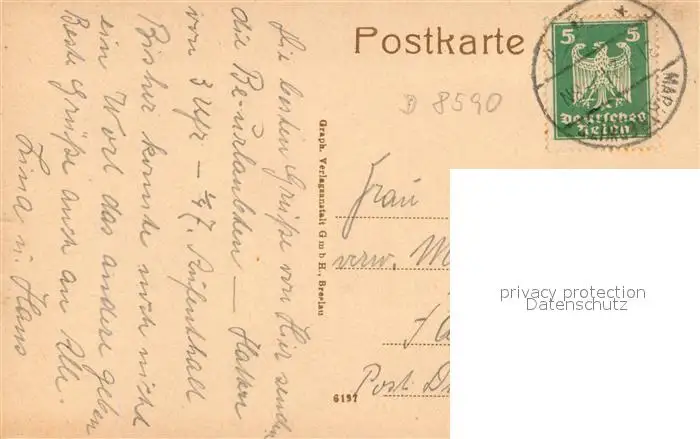 Postkarte
5 5
Deutsches
Reich
D 8590
Die besten Grüße von Hier sendet
die Beurlaubten — Hatten
von 3 Uhr — ½7. Aufenthalt
Bisher konnte noch nicht
ein Wort das andere geben
Beste Grüße auch an Alle.
Lina u. Hans
Graph. Verlagsanstalt G m b H., Breslau
6197
Frau
verw. M
Post
privacy protection
Datenschutz